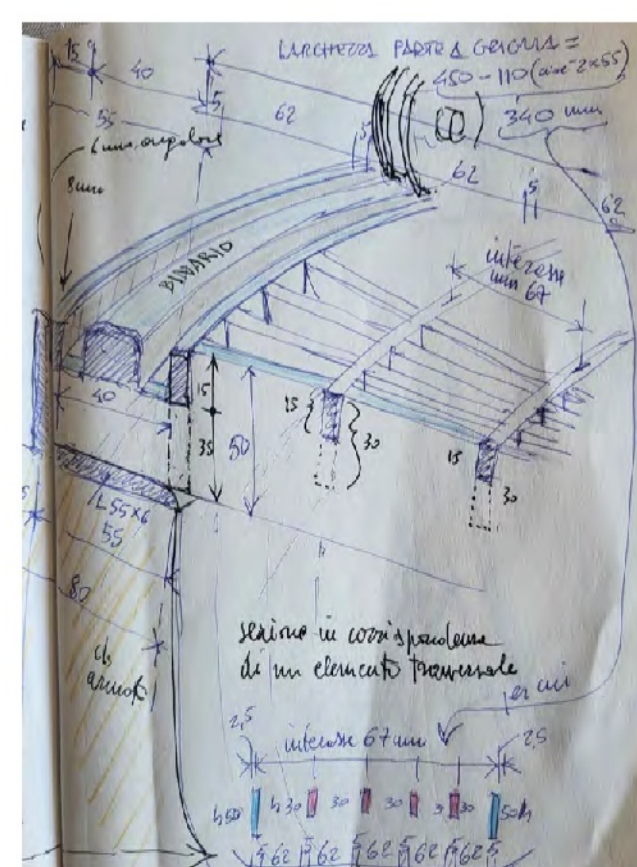 LARGHEZZA PARTE A GRIGLIA =
450 - 110 (cioè 2x55)
340 mm
15
40
5
55
62
5
62
5
62
8mm
BINARIO
interasse
mm 67
40
15
35
50
15
30
15
30
L 55x6
55
80
cls
armato
sezione in corrispondenza
di un elemento trasversale
per cui
2,5
interasse 67 mm
2,5
h50
h30
30
30
30
50h
5 62 5 62 5 62 5 62 5 62 5